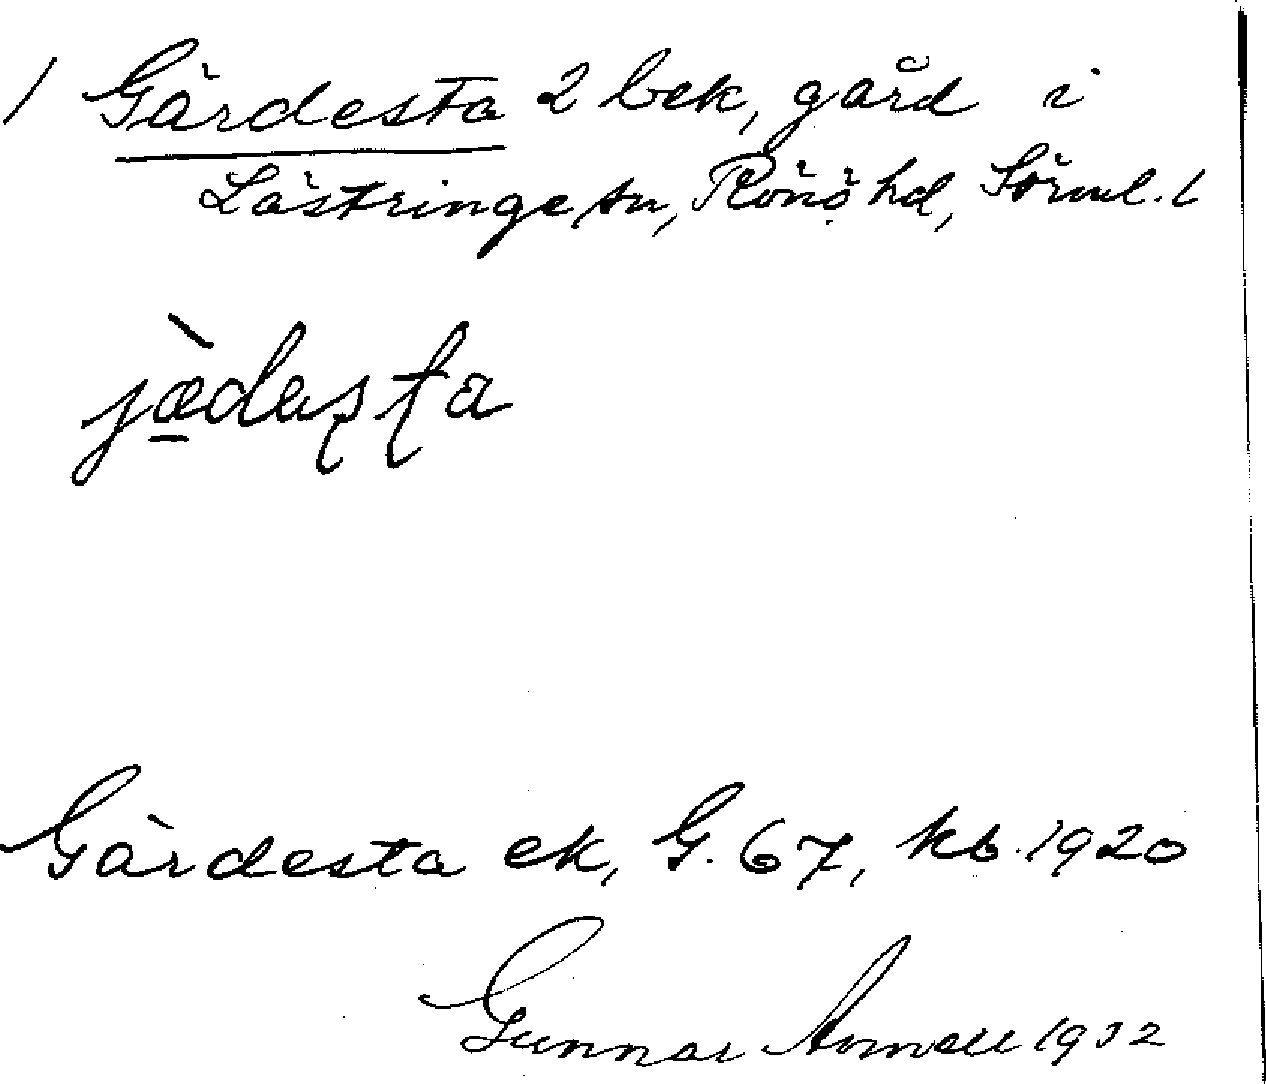 / Gärdesta 2 bek, gård i
Lästringe sn, Rönö hd, Sörml. l
jædasta
Gärdesta ek, G. 67, kb. 1920
Gunnar 1932